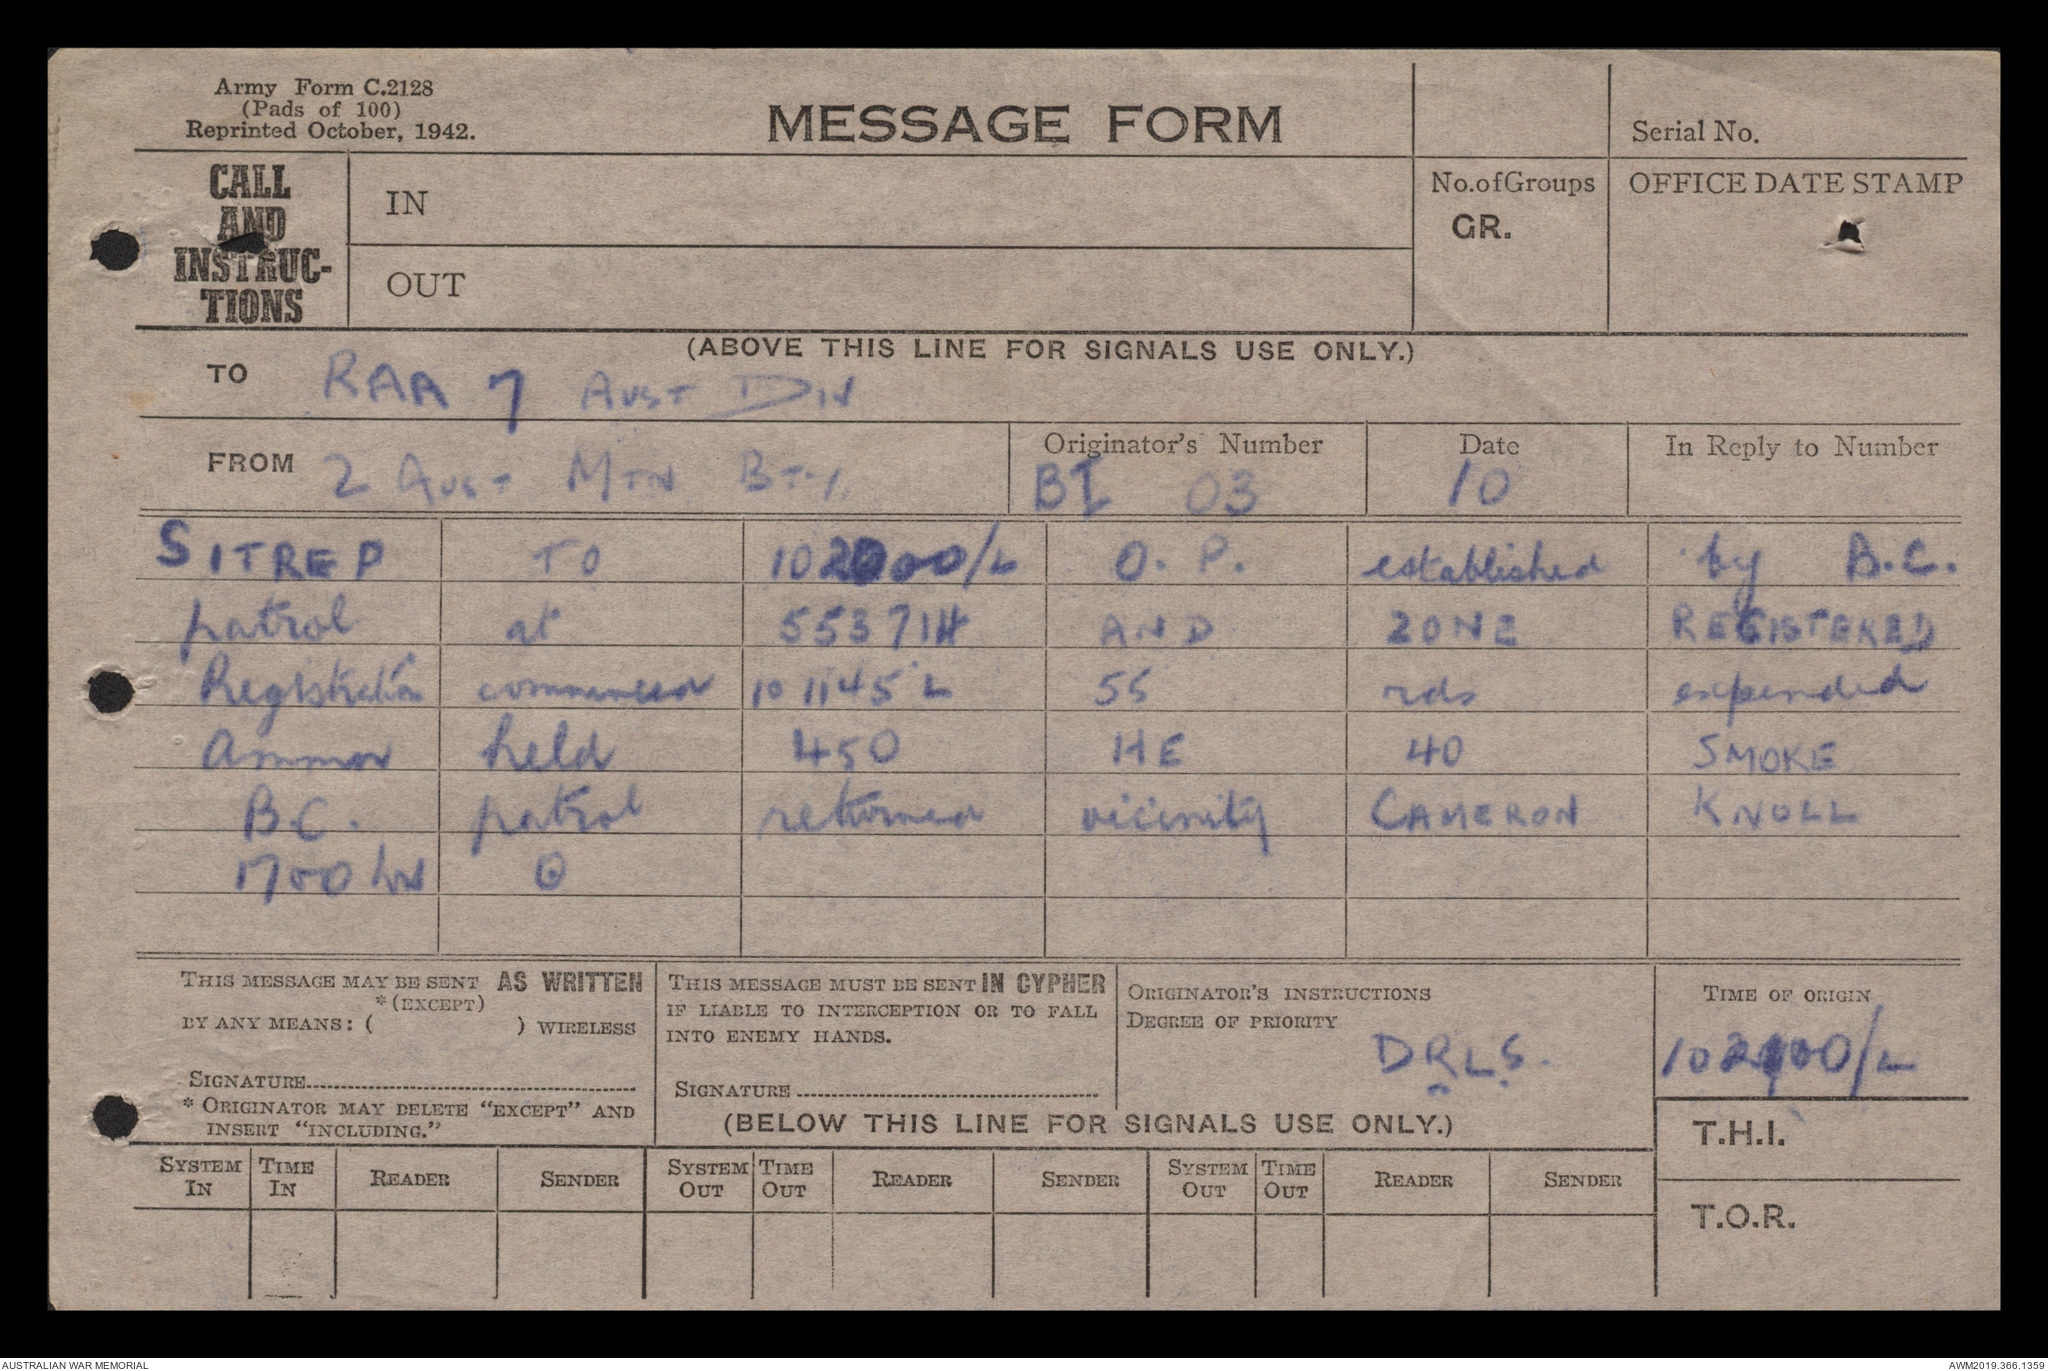 Army Form C.2128
(Pads of 100)
Reprinted October, 1942.
MESSAGE FORM
Serial No.
CALL
AND
INSTRUC-
TIONS
IN
OUT
No. of Groups
GR.
OFFICE DATE STAMP
(ABOVE THIS LINE FOR SIGNALS USE ONLY.)
TO RAA 7 AUST DIV
FROM 2 AUST MTN BTY
Originator's Number
BI 03
Date
10
In Reply to Number
SITREP TO 102000/L O.P. established by B.C.
patrol at 553714 AND ZONE REGISTERED
Registration commenced 101145 L 55 rds expended
Ammn held 450 HE 40 SMOKE
B.C. patrol returned vicinity CAMERON KNOLL
1700 hrs
THIS MESSAGE MAY BE SENT AS WRITTEN
*(EXCEPT)
BY ANY MEANS: ( ) WIRELESS
SIGNATURE
* ORIGINATOR MAY DELETE "EXCEPT" AND
INSERT "INCLUDING."
THIS MESSAGE MUST BE SENT IN CYPHER
IF LIABLE TO INTERCEPTION OR TO FALL
INTO ENEMY HANDS.
SIGNATURE
ORIGINATOR'S INSTRUCTIONS
DEGREE OF PRIORITY
DRLS.
TIME OF ORIGIN
(BELOW THIS LINE FOR SIGNALS USE ONLY.)
T.H.I.
T.O.R.
SYSTEM IN TIME IN READER SENDER SYSTEM OUT TIME OUT READER SENDER SYSTEM OUT TIME OUT READER SENDER
AUSTRALIAN WAR MEMORIAL
AWM2019.366.1359